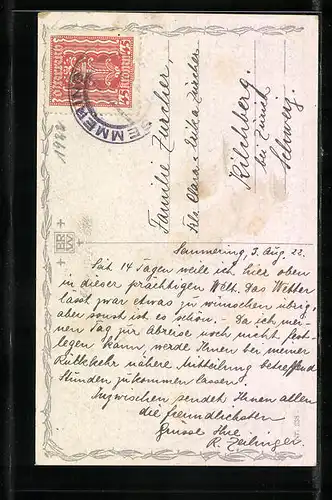 45 Kronen 45
SEMMERING
1922
Familie Zürcher,
Frls Clara & Lidia Zürcher
Kilchberg.
bei Zürich
Schweiz.
Semmering, 3. Aug. 22.
Seit 14 Tagen weile ich hier oben
in dieser prächtigen Welt. Das Wetter
lässt zwar etwas zu wünschen übrig,
aber sonst ist es schön. – Da ich mei-
nen Tag zur Abreise noch nicht fest-
legen kann, werde Ihnen bei meiner
Rückkehr nähere Mitteilung betreffend
Stunden zukommen lassen.
Inzwischen sendet Ihnen allen
die freundlichsten
Grüsse Ihre
R. Zeilinger.